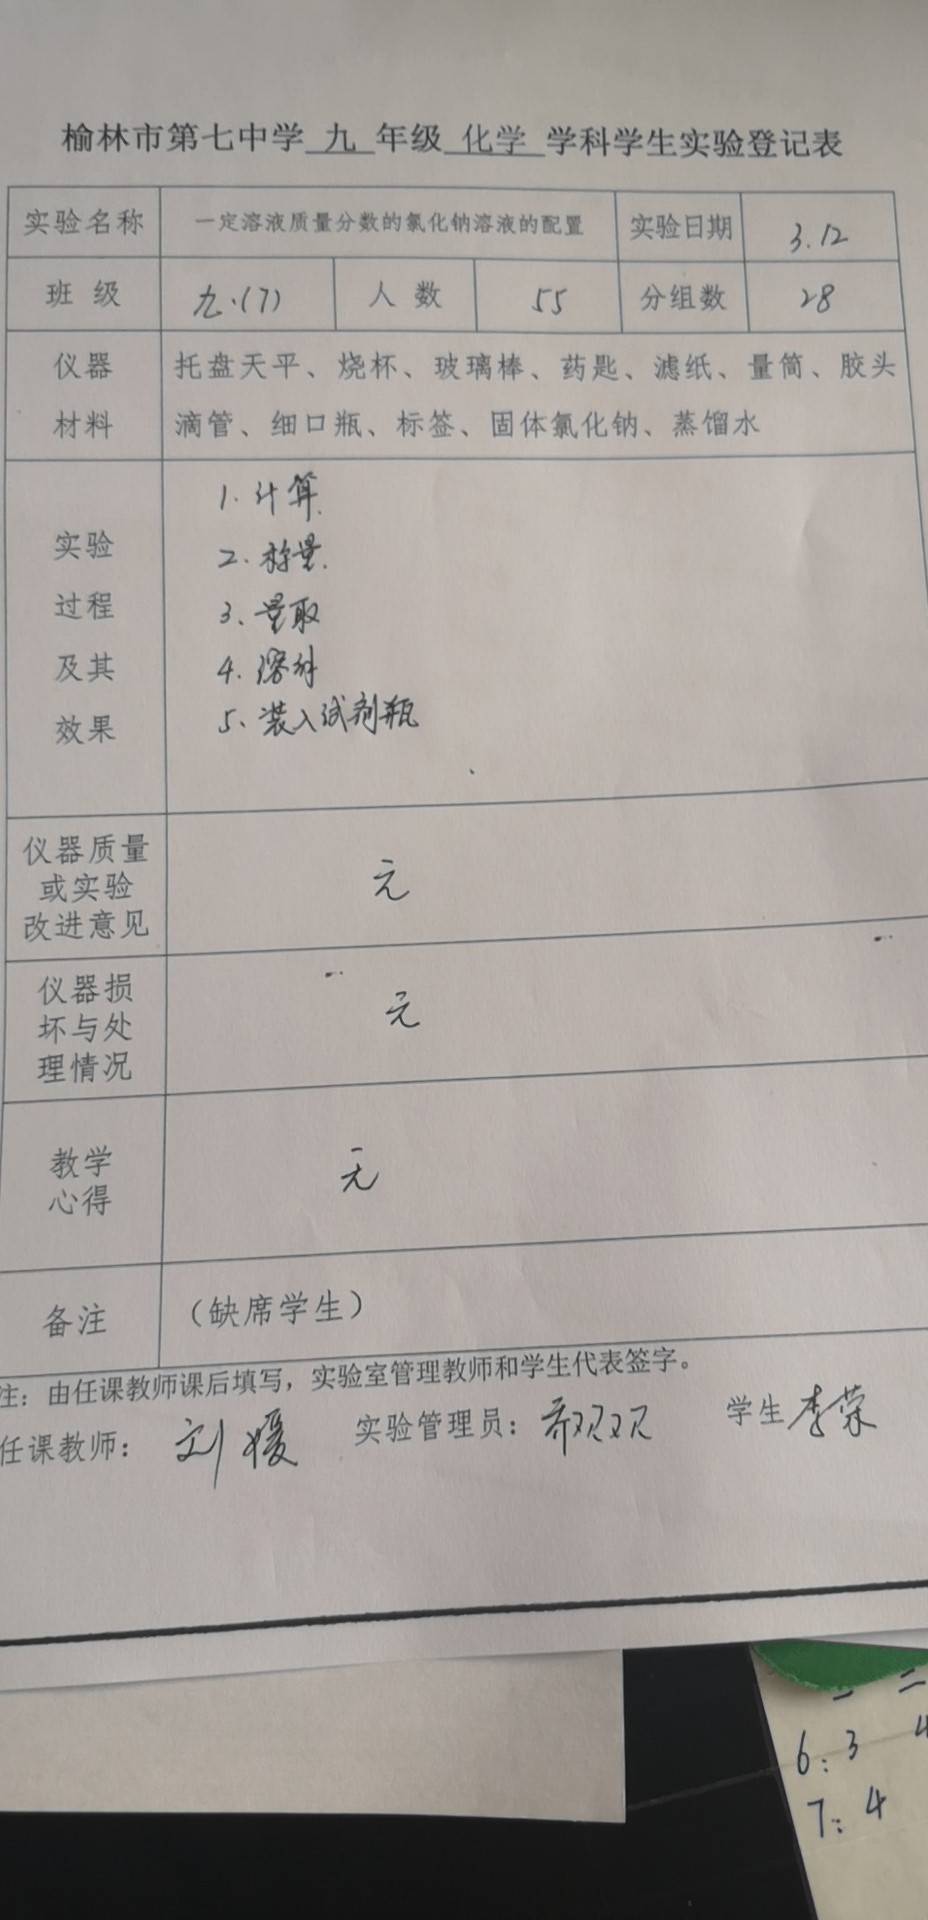 榆林市第七中学 九 年级 化学 学科学生实验登记表
实验名称 一定溶液质量分数的氯化钠溶液的配置 实验日期 3.12
班 级 九.(7) 人 数 55 分组数 28
仪器 材料 托盘天平、烧杯、玻璃棒、药匙、滤纸、量筒、胶头
滴管、细口瓶、标签、固体氯化钠、蒸馏水
实验
过程
及其
效果
1. 计算.
2. 称量.
3、量取
4. 溶解
5、装入试剂瓶
仪器质量
或实验
改进意见
无
仪器损
坏与处
理情况
无
教学
心得
无
备注 （缺席学生）
注：由任课教师课后填写，实验室管理教师和学生代表签字。
任课教师： 刘媛 实验管理员： 学生 李荣
6: 3 4
7: 4